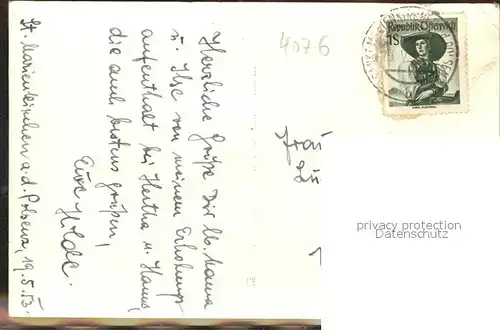 St. Marienkirchen a. d. Polsenz 19.5.53.
Herzliche Grüße Dir lb. Mama
u. Ilse von meinem Erholungs-
aufenthalt bei Hertha u. Hannes,
die auch bestens grüßen,
Eure Hilde.
4076
Republik Österreich
1S
Frau
privacy protection
Datenschutz